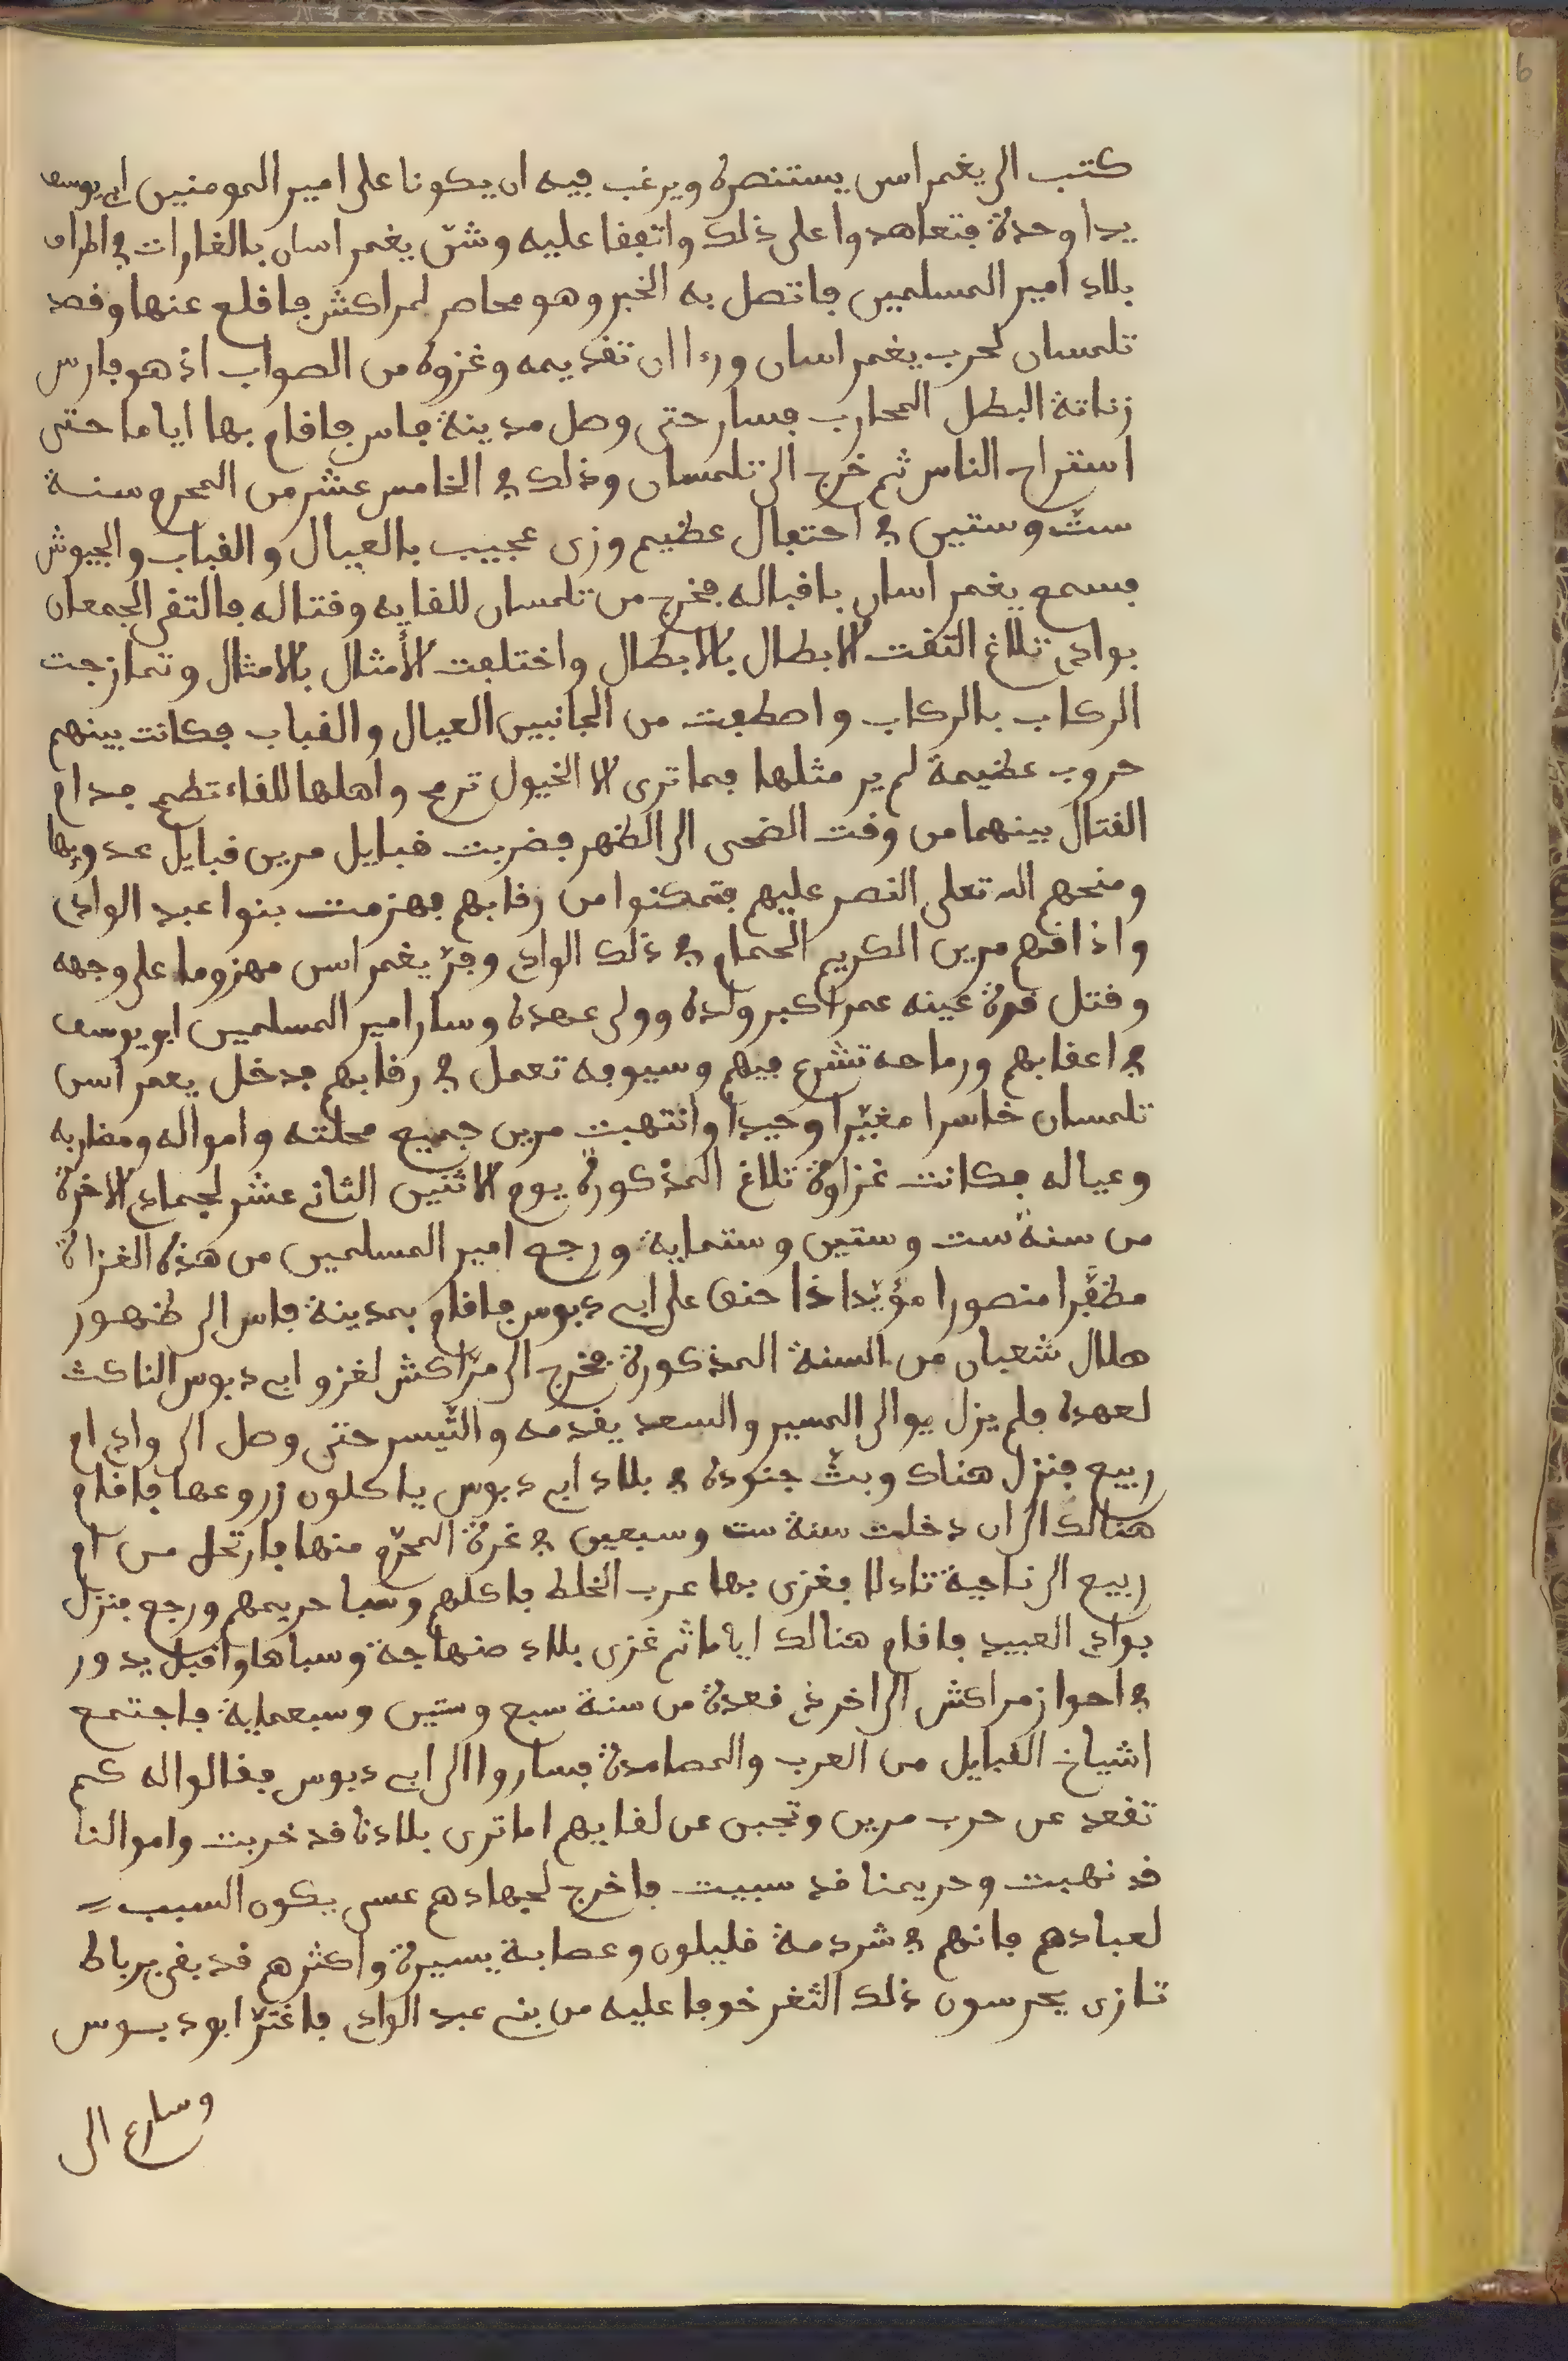 كتب الى يغمراسن يستنصره ويرغب فيه ان يكونا على امير المومنين ابي يوسف
يدا وحدة فتعاهدوا على ذلك واتفقا عليه وشنّ يغمراسان بالغارات في اطراف
بلاد امير المسلمين فاتصل به الخبر وهو محاصر لمراكش فاقلع عنها وقصد
تلمسان لحرب يغمراسان ورءا ان تقديمه وغزوه من الصواب اذ هو فارس
زناتة البطل المحارب فسار حتى وصل مدينة فاس فاقام بها اياما حتى
استراح الناس ثم خرج الى تلمسان وذلك في الخامس عشر من المحرم سنة
ستّ وستين في احتفال عظيم وزى عجيب بالعيال والقباب والجيوش
فسمع يغمراسان باقباله فخرج من تلمسان للقايه وقتاله فالتقى الجمعان
بوادي تلاغ التقت الابطال بالابطال واختلفت الأمثال بالامثال وتمازجت
الركاب بالركاب واصطفت من الجانبين العيال والقباب فكانت بينهم
حروب عظيمة لم ير مثلها فما ترى الا الخيول ترمح واهلها للقاء تطمح فدام
القتال بينهما من وقت الضحى الى الظهر فضربت قبايل مرين قبايل عدوها
ومنحهم الله تعلى النصر عليهم فتمكنوا من رقابهم فهزمت بنوا عبد الوادي
واذاقهم مرين الكريم الحمام في ذلك الوادي وفرّ يغمراسن مهزوما على وجهه
وقتل قرة عينه عمر اكبر ولده وولى عهده وسار امير المسلمين ابو يوسف
في اعقابهم ورماحه تشرع فيهم وسيوفه تعمل في رقابهم فدخل يعمراسن
تلمسان خاسرا مغبّرا وحيدا وانتهبت مرين جميع محلته وامواله ومضاربه
وعياله فكانت غزاوة تلاغ المذكورة يوم الاثنين الثاني عشر لجمادي الاخرة
من سنة ست وستين وستماية ورجع امير المسلمين من هذه الغزاة
مظفّرا منصورا مؤيّدا ذا حنق على ابي دبوس فاقام بمدينة فاس الى ظهور
هلال شعبان من السنة المذكورة فخرج الى مرّاكش لغزو ابي دبوس الناكث
لعهده فلم يزل يوالى المسير والسعد يقدمه والتّيسر حتى وصل الى وادي ام
ربيع فنزل هناك وبثّ جنوده في بلاد ابي دبوس ياكلون زروعها فاقام
هنالك الى ان دخلت سنة ست وسبعين في غرة المحرّم منها فارتحل من ام
ربيع الى ناحية تادلا فغزى بها عرب الخلط فاكلهم وسبا حريمهم ورجع فنزل
بوادي العبيد فاقام هنالك اياما ثم غزى بلاد صنهاجة وسباها واقبل يدور
في احواز مراكش الى اخر ذي قعدة من سنة سبع وستين وسبعماية فاجتمع
اشياخ القبايل من العرب والمصامدة فساروا الى ابي دبوس فقالوا له كم
تقعد عن حرب مرين وتجبن عن لقايهم اما ترى بلادنا قد خربت واموالنا
قد نهبت وحريمنا قد سبيت فاخرج لجهادهم عسى يكون السبب
لعبادهم فانهم في شردمة قليلون وعصابة يسيرة واكثرهم قد بقي برباط
تازى يحرسون ذلك الثغر خوفا عليه من بني عبد الوادي فاغترّ ابو دبوس
وسارع الى